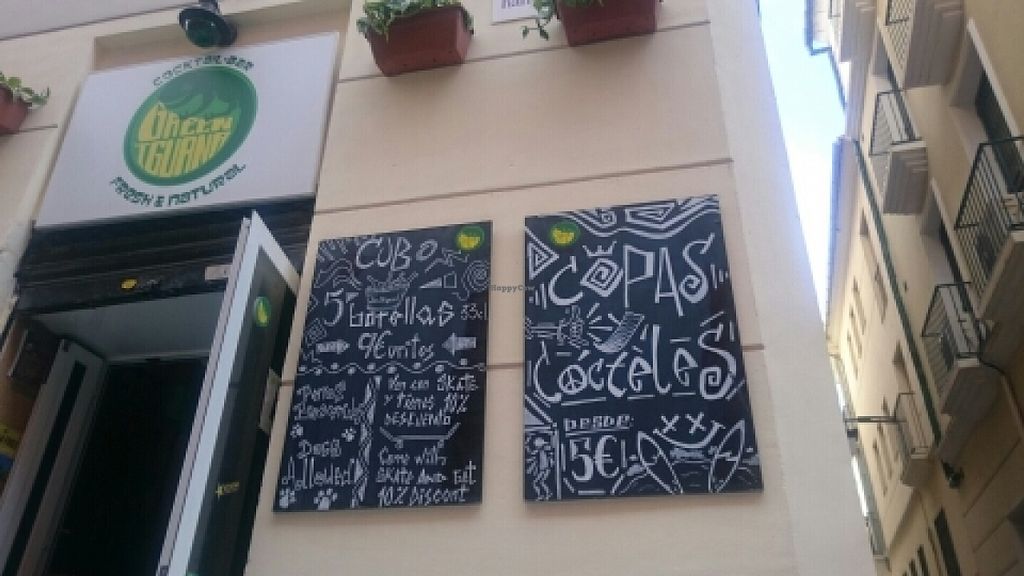 COCKTAIL BAR
GREEN
IGUANA
FRESH & NATURAL
CUBO
5 botellas 33cl
9€ unites
Perros
Dogs
Allowed!
Ven con SKATE
y tienes 10%
DESKUENDO
Come with
SKATE And GET
10% Discont
COPAS
Cócteles
DESDE
5€
HappyCow